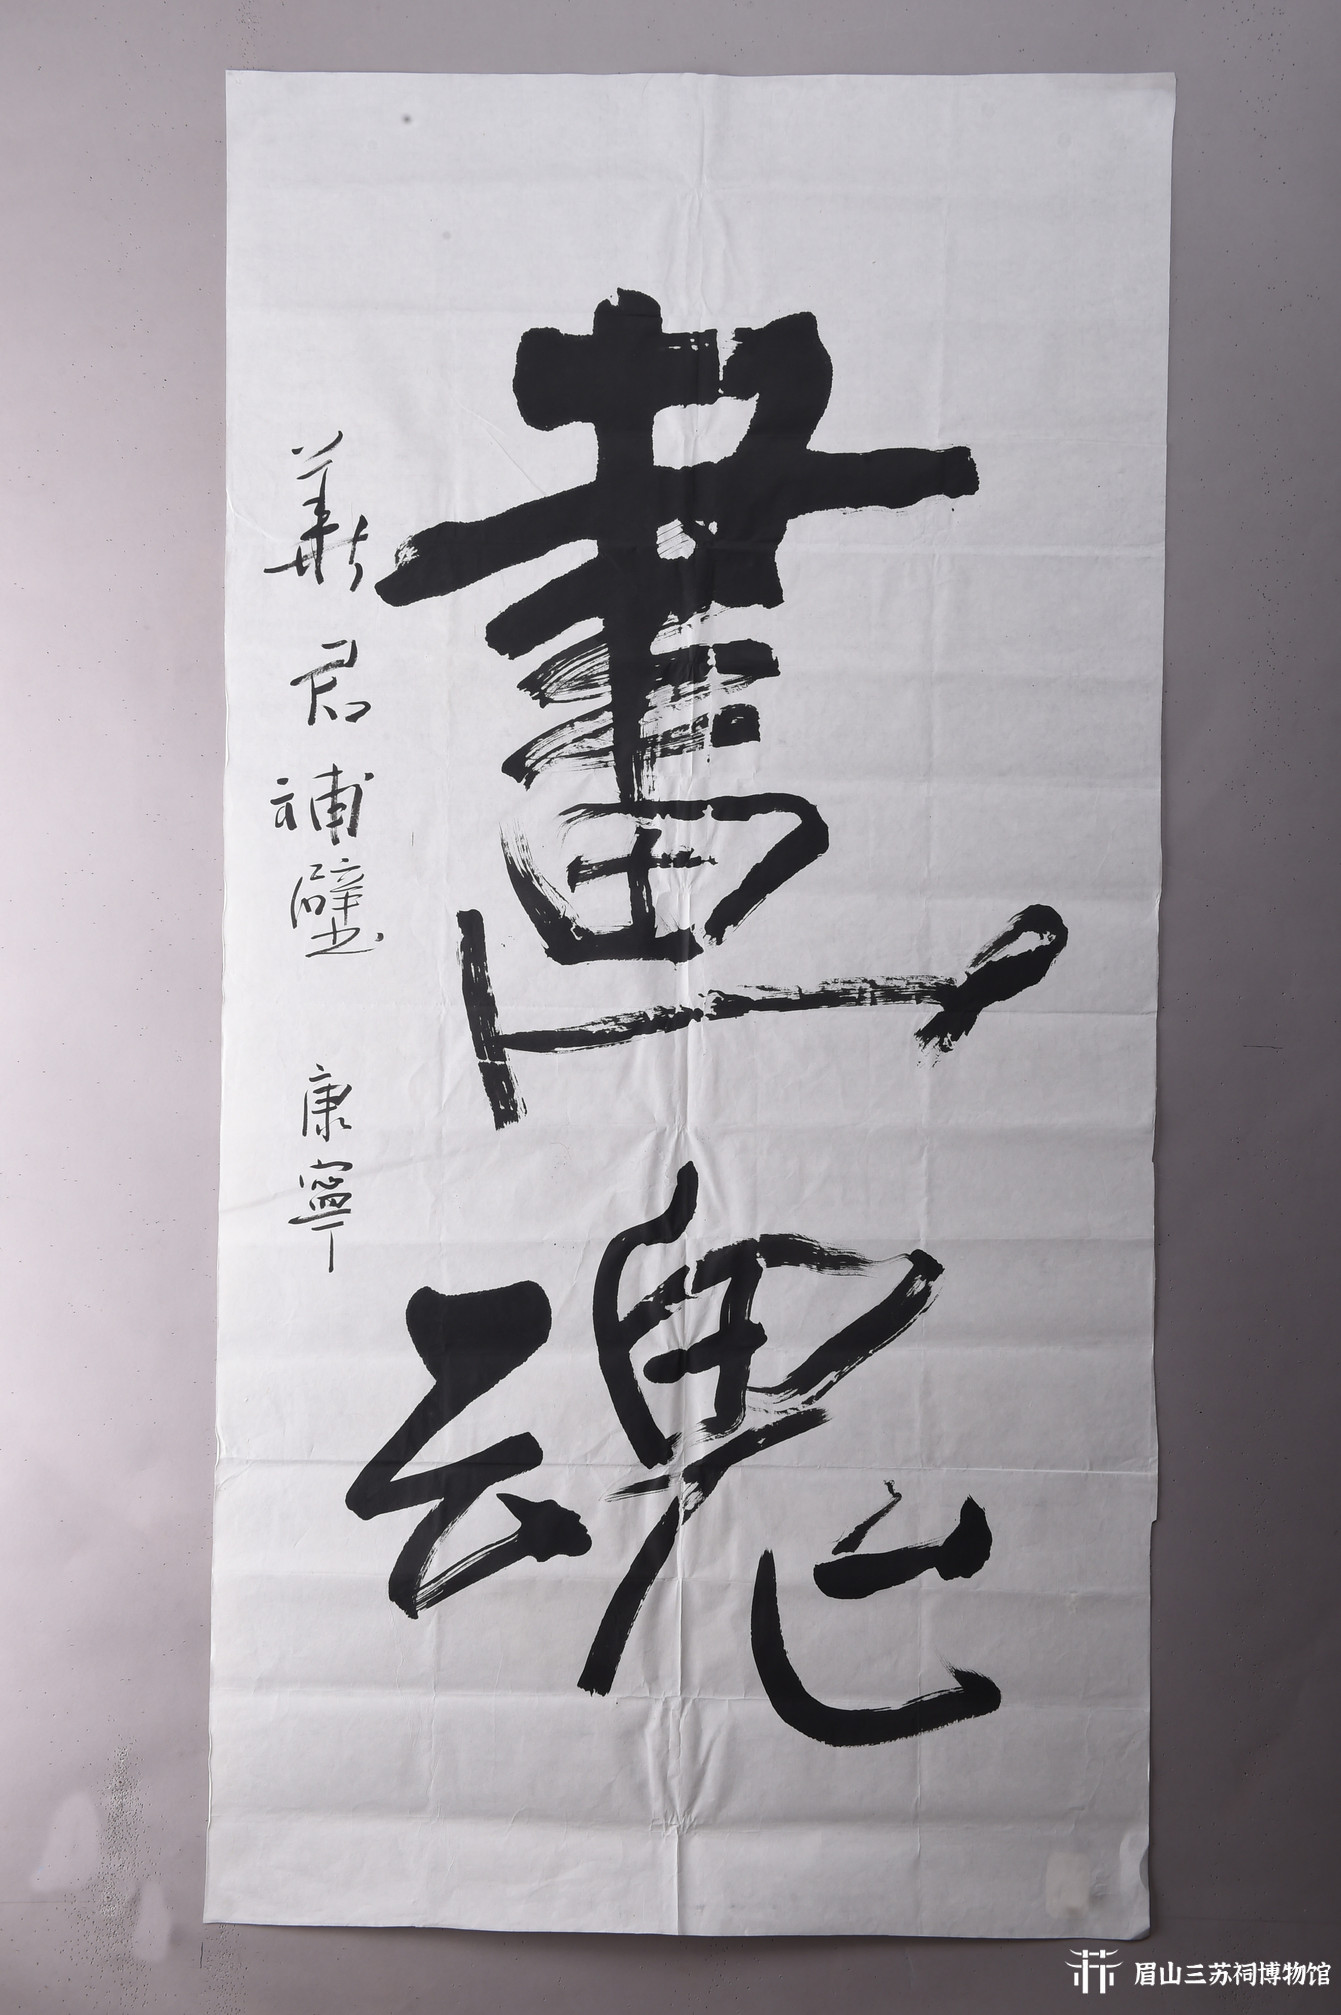 畫魂
君補壁 康寧
眉山三苏祠博物馆